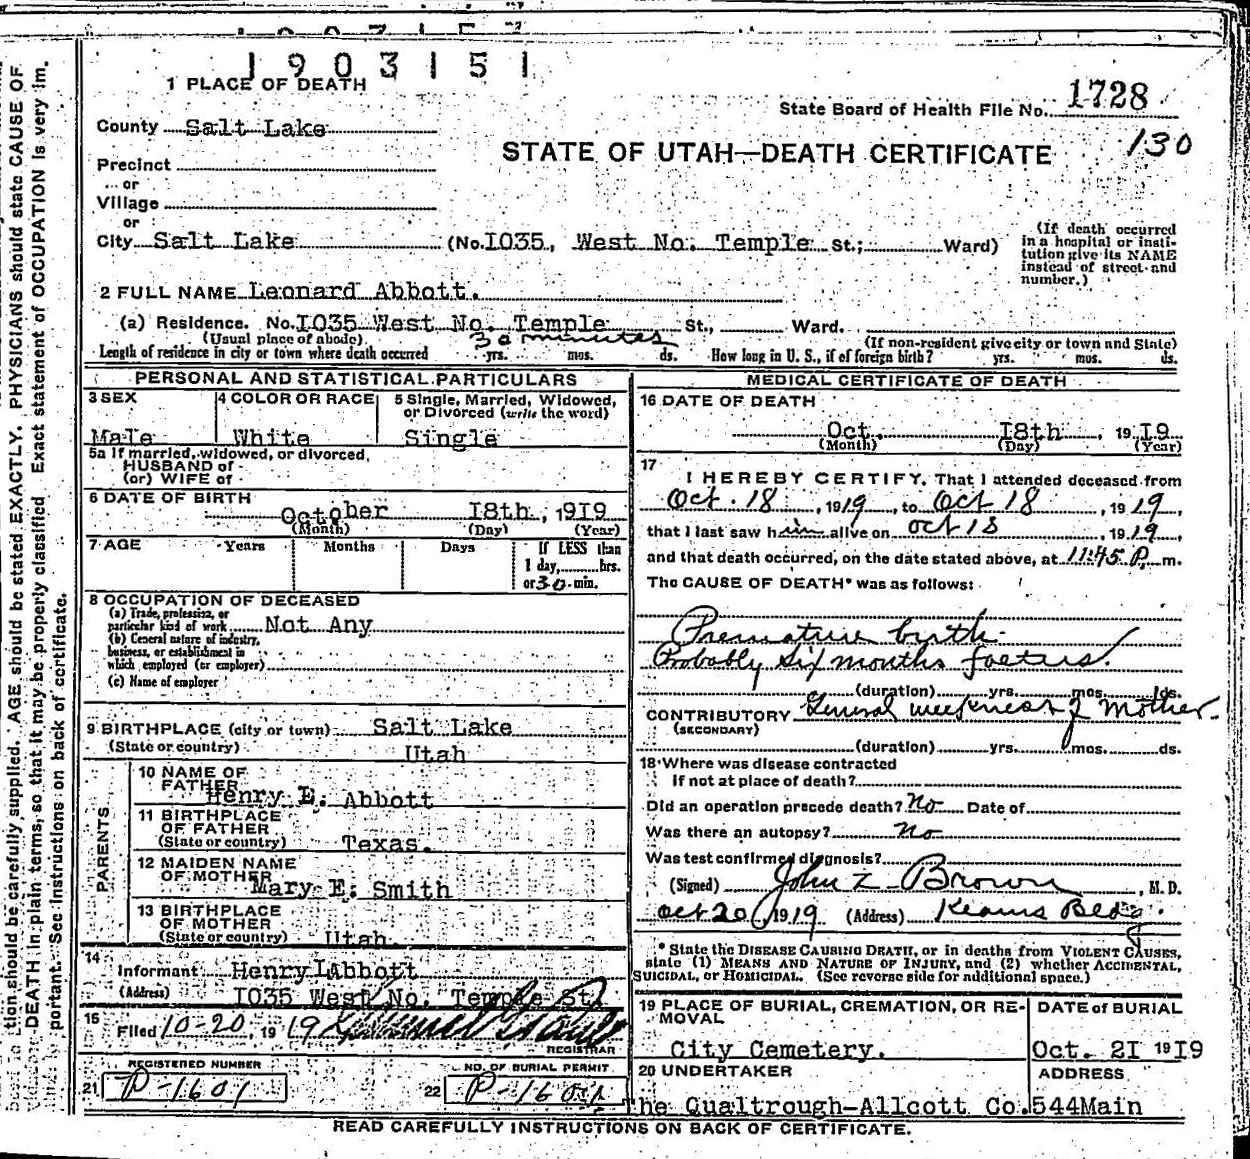 1903151
1 PLACE OF DEATH
State Board of Health File No. 1728
County Salt Lake
130
STATE OF UTAH—DEATH CERTIFICATE
Precinct
or
Village
or
City Salt Lake (No. I035, West No. Temple St.; Ward)
(If death occurred
in a hospital or insti-
tution give its NAME
instead of street and
number.)
2 FULL NAME Leonard Abbott.
(a) Residence. No. I035 West No. Temple St., Ward.
(Usual place of abode) (If non-resident give city or town and State)
30 minutes
Length of residence in city or town where death occurred yrs. mos. ds. How long in U. S., if of foreign birth? yrs. mos. ds.
PERSONAL AND STATISTICAL PARTICULARS
3 SEX 4 COLOR OR RACE 5 Single, Married, Widowed,
or Divorced (write the word)
Male White Single
5a If married, widowed, or divorced,
HUSBAND of
(or) WIFE of
6 DATE OF BIRTH
October I8th, 1919
(Month) (Day) (Year)
7 AGE Years Months Days If LESS than
1 day, hrs.
or 30 min.
8 OCCUPATION OF DECEASED
(a) Trade, profession, or
particular kind of work Not Any
(b) General nature of industry,
business, or establishment in
which employed (or employer)
(c) Name of employer
9 BIRTHPLACE (city or town) Salt Lake
(State or country) Utah
PARENTS
10 NAME OF
FATHER Henry E. Abbott
11 BIRTHPLACE
OF FATHER
(State or country) Texas.
12 MAIDEN NAME
OF MOTHER Mary E. Smith
13 BIRTHPLACE
OF MOTHER
(State or country) Utah
14
Informant Henry Abbott
(Address) I035 West No. Temple St.
15 Filed 10-20, 1919
REGISTRAR
REGISTERED NUMBER NO. OF BURIAL PERMIT
21 P-1601 22 P-1601
MEDICAL CERTIFICATE OF DEATH
16 DATE OF DEATH
Oct. I8th, 19I9
(Month) (Day) (Year)
17
I HEREBY CERTIFY, That I attended deceased from
Oct. 18, 1919, to Oct 18, 1919,
that I last saw him alive on Oct 18, 1919,
and that death occurred, on the date stated above, at 11:45 P. m.
The CAUSE OF DEATH* was as follows:
Premature birth
Probably six months foetus.
(duration) yrs. mos. ds.
CONTRIBUTORY General weekness of Mother.
(SECONDARY)
(duration) yrs. mos. ds.
18 Where was disease contracted
if not at place of death?
Did an operation precede death? No Date of
Was there an autopsy? no
Was test confirmed diagnosis?
(Signed) John Z Brown, M. D.
Oct 20, 1919 (Address) Kearns Bldg.
* State the DISEASE CAUSING DEATH, or in deaths from VIOLENT CAUSES,
state (1) MEANS AND NATURE OF INJURY, and (2) whether ACCIDENTAL,
SUICIDAL, or HOMICIDAL. (See reverse side for additional space.)
19 PLACE OF BURIAL, CREMATION, OR RE-
MOVAL
DATE of BURIAL
City Cemetery. Oct. 2I 19I9
20 UNDERTAKER ADDRESS
The Qualtrough-Allcott Co. 544Main
READ CAREFULLY INSTRUCTIONS ON BACK OF CERTIFICATE.
tion should be carefully supplied. AGE should be stated EXACTLY. PHYSICIANS should state CAUSE OF
DEATH in plain terms, so that it may be properly classified. Exact statement of OCCUPATION is very im-
portant. See instructions on back of certificate.